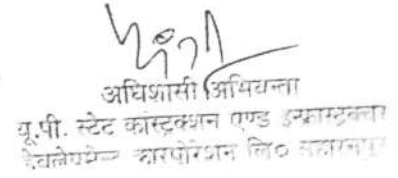 अधिशासी अभियन्ता
यू.पी. स्टेट कांस्ट्रक्शन एण्ड इन्फ्रास्ट्रक्चर
डेवलेपमेन्ट कारपोरेशन लि० सहारनपुर